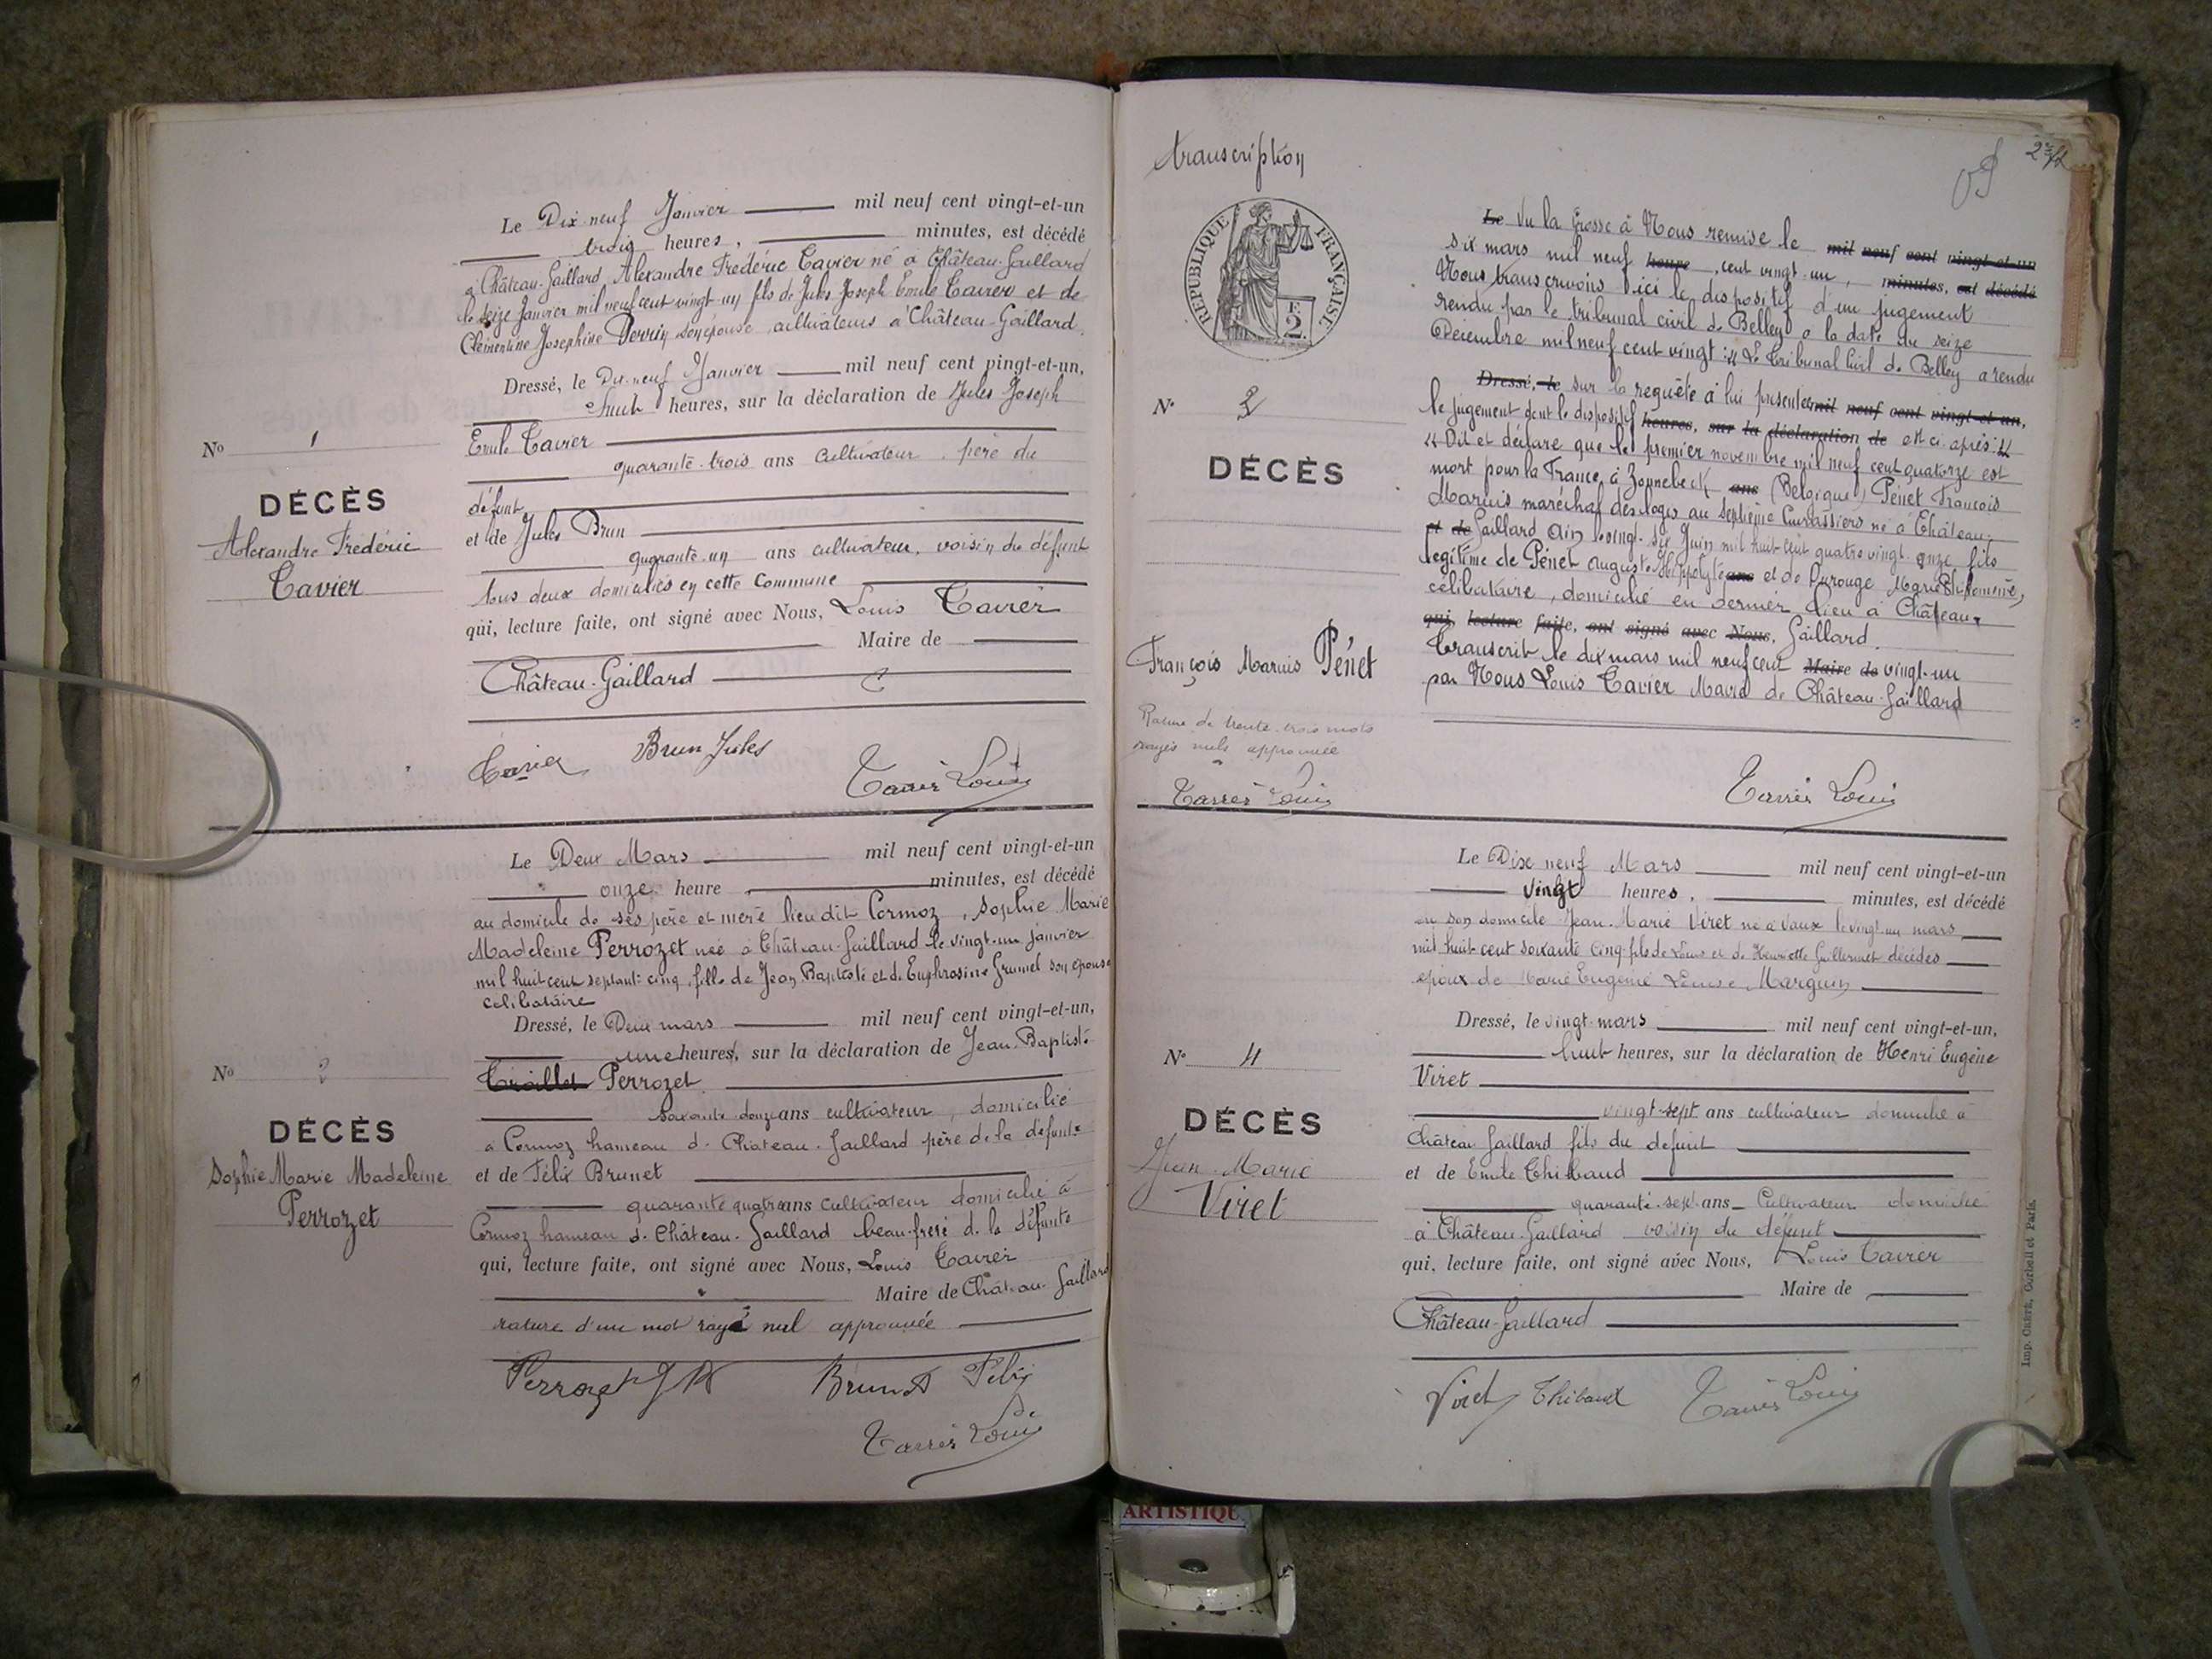 Le Dix neuf Janvier mil neuf cent vingt-et-un
trois heures, minutes, est décédé
à Château-Gaillard, Alexandre Frédéric Tavier né à Château-Gaillard
le seize Janvier mil neuf cent vingt-un fils de Jules Joseph Emile Tavier et de
Clémentine Josephine Perrin son épouse cultivateurs à Château-Gaillard.
Dressé, le Dix-neuf Janvier mil neuf cent vingt-et-un,
huit heures, sur la déclaration de Jules Joseph
Emile Tavier
quarante-trois ans cultivateur, père du
défunt
et de Jules Brun
quarante-un ans cultivateur, voisin du défunt
tous deux domiciliés en cette Commune
qui, lecture faite, ont signé avec Nous, Louis Tavier
Maire de
Château-Gaillard
No 1
DÉCÈS
Alexandre Frédéric
Tavier
Tavier Brun Jules
Tavier Louis
Le Deux Mars mil neuf cent vingt-et-un
onze heure minutes, est décédé
au domicile de ses père et mère lieu dit Cormoz, Sophie Marie
Madeleine Perrozet née à Château-Gaillard le vingt-un janvier
mil huit cent septante cinq, fille de Jean Baptiste et de Euphrosine Grumel son épouse
célibataire
Dressé, le Deux mars mil neuf cent vingt-et-un,
une heures, sur la déclaration de Jean-Baptiste
Troillet Perrozet
soixante douze ans cultivateur, domicilié
à Cormoz hameau de Château-Gaillard père de la défunte
et de Félix Brunet
quarante quatre ans cultivateur domicilié à
Cormoz hameau de Château-Gaillard beau-frère de la défunte
qui, lecture faite, ont signé avec Nous, Louis Tavier
Maire de Château-Gaillard
rature d'un mot rayé nul approuvée
No 2
DÉCÈS
Sophie Marie Madeleine
Perrozet
Perrozet J B Brunet Félix
Tavier Louis
transcription
RÉPUBLIQUE FRANÇAISE
2.
Le Vu la Grosse à Nous remise le mil neuf cent vingt-et-un
six mars mil neuf heure, cent vingt-un, minutes, est décédé
Nous transcrivons ici le dispositif d'un jugement
rendu par le tribunal civil de Belley à la date du seize
Décembre mil neuf cent vingt : "Le Tribunal Civil de Belley a rendu
Dressé, le sur la requête à lui présentée mil neuf cent vingt-et-un,
le jugement dont le dispositif heures, sur la déclaration de est ci-après: "
"Dit et déclare que le premier novembre mil neuf cent quatorze est
mort pour la France, à Zonnebeck ans (Belgique) Pénet François
Marius maréchal des logis au septième Cuirassiers né à Château-
et de Gaillard Ain le vingt-six Juin mil huit cent quatre vingt-onze fils
légitime de Pénet Auguste Hippolyte ans et de Purouge Marie Philomène,
célibataire, domicilié en dernier lieu à Château-
qui, lecture faite, ont signé avec Nous, Gaillard.
Transcrit le dix mars mil neuf cent Maire de vingt-un
par Nous Louis Tavier Maire de Château-Gaillard
No 3
DÉCÈS
François Marius Pénet
Rature de trente-trois mots
rayés nuls approuvée
Tavier Louis
Tavier Louis
Le Dix neuf Mars mil neuf cent vingt-et-un
vingt heures, minutes, est décédé
en son domicile Jean-Marie Viret né à Vaux le vingt-un mars
mil huit cent soixante cinq fils de Louis et de Henriette Guillermet décédés
époux de Marie Eugénie Louise Marguin
Dressé, le vingt mars mil neuf cent vingt-et-un,
huit heures, sur la déclaration de Henri Eugène
Viret
vingt-sept ans cultivateur domicilié à
Château-Gaillard fils du défunt
et de Emile Thibaud
quarante-sept ans Cultivateur domicilié
à Château-Gaillard voisin du défunt
qui, lecture faite, ont signé avec Nous, Louis Tavier
Maire de
Château-Gaillard
No 4
DÉCÈS
Jean-Marie
Viret
Viret Thibaud Tavier Louis
ARTISTIQU